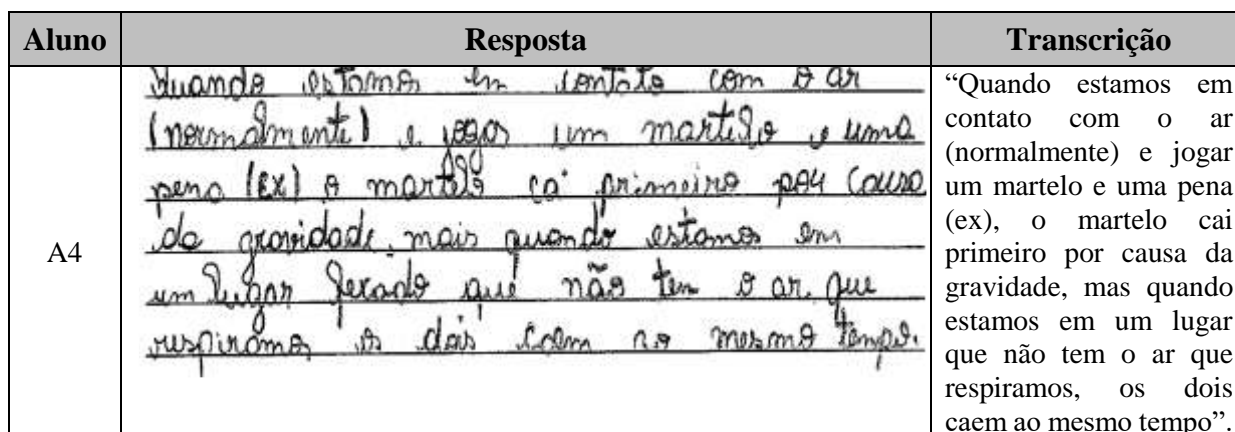 Aluno Resposta Transcrição
A4
Quando estamos em contato com o ar
(normalmente) e jogar um martelo e uma
pena (EX) o martelo ca' primeiro por causa
da gravidade, mais quando estamos em
um lugar ferado que não tem o ar, que
respiramos os dois caem no mesmo tempo.
“Quando estamos em
contato com o ar
(normalmente) e jogar
um martelo e uma pena
(ex), o martelo cai
primeiro por causa da
gravidade, mas quando
estamos em um lugar
que não tem o ar que
respiramos, os dois
caem ao mesmo tempo”.